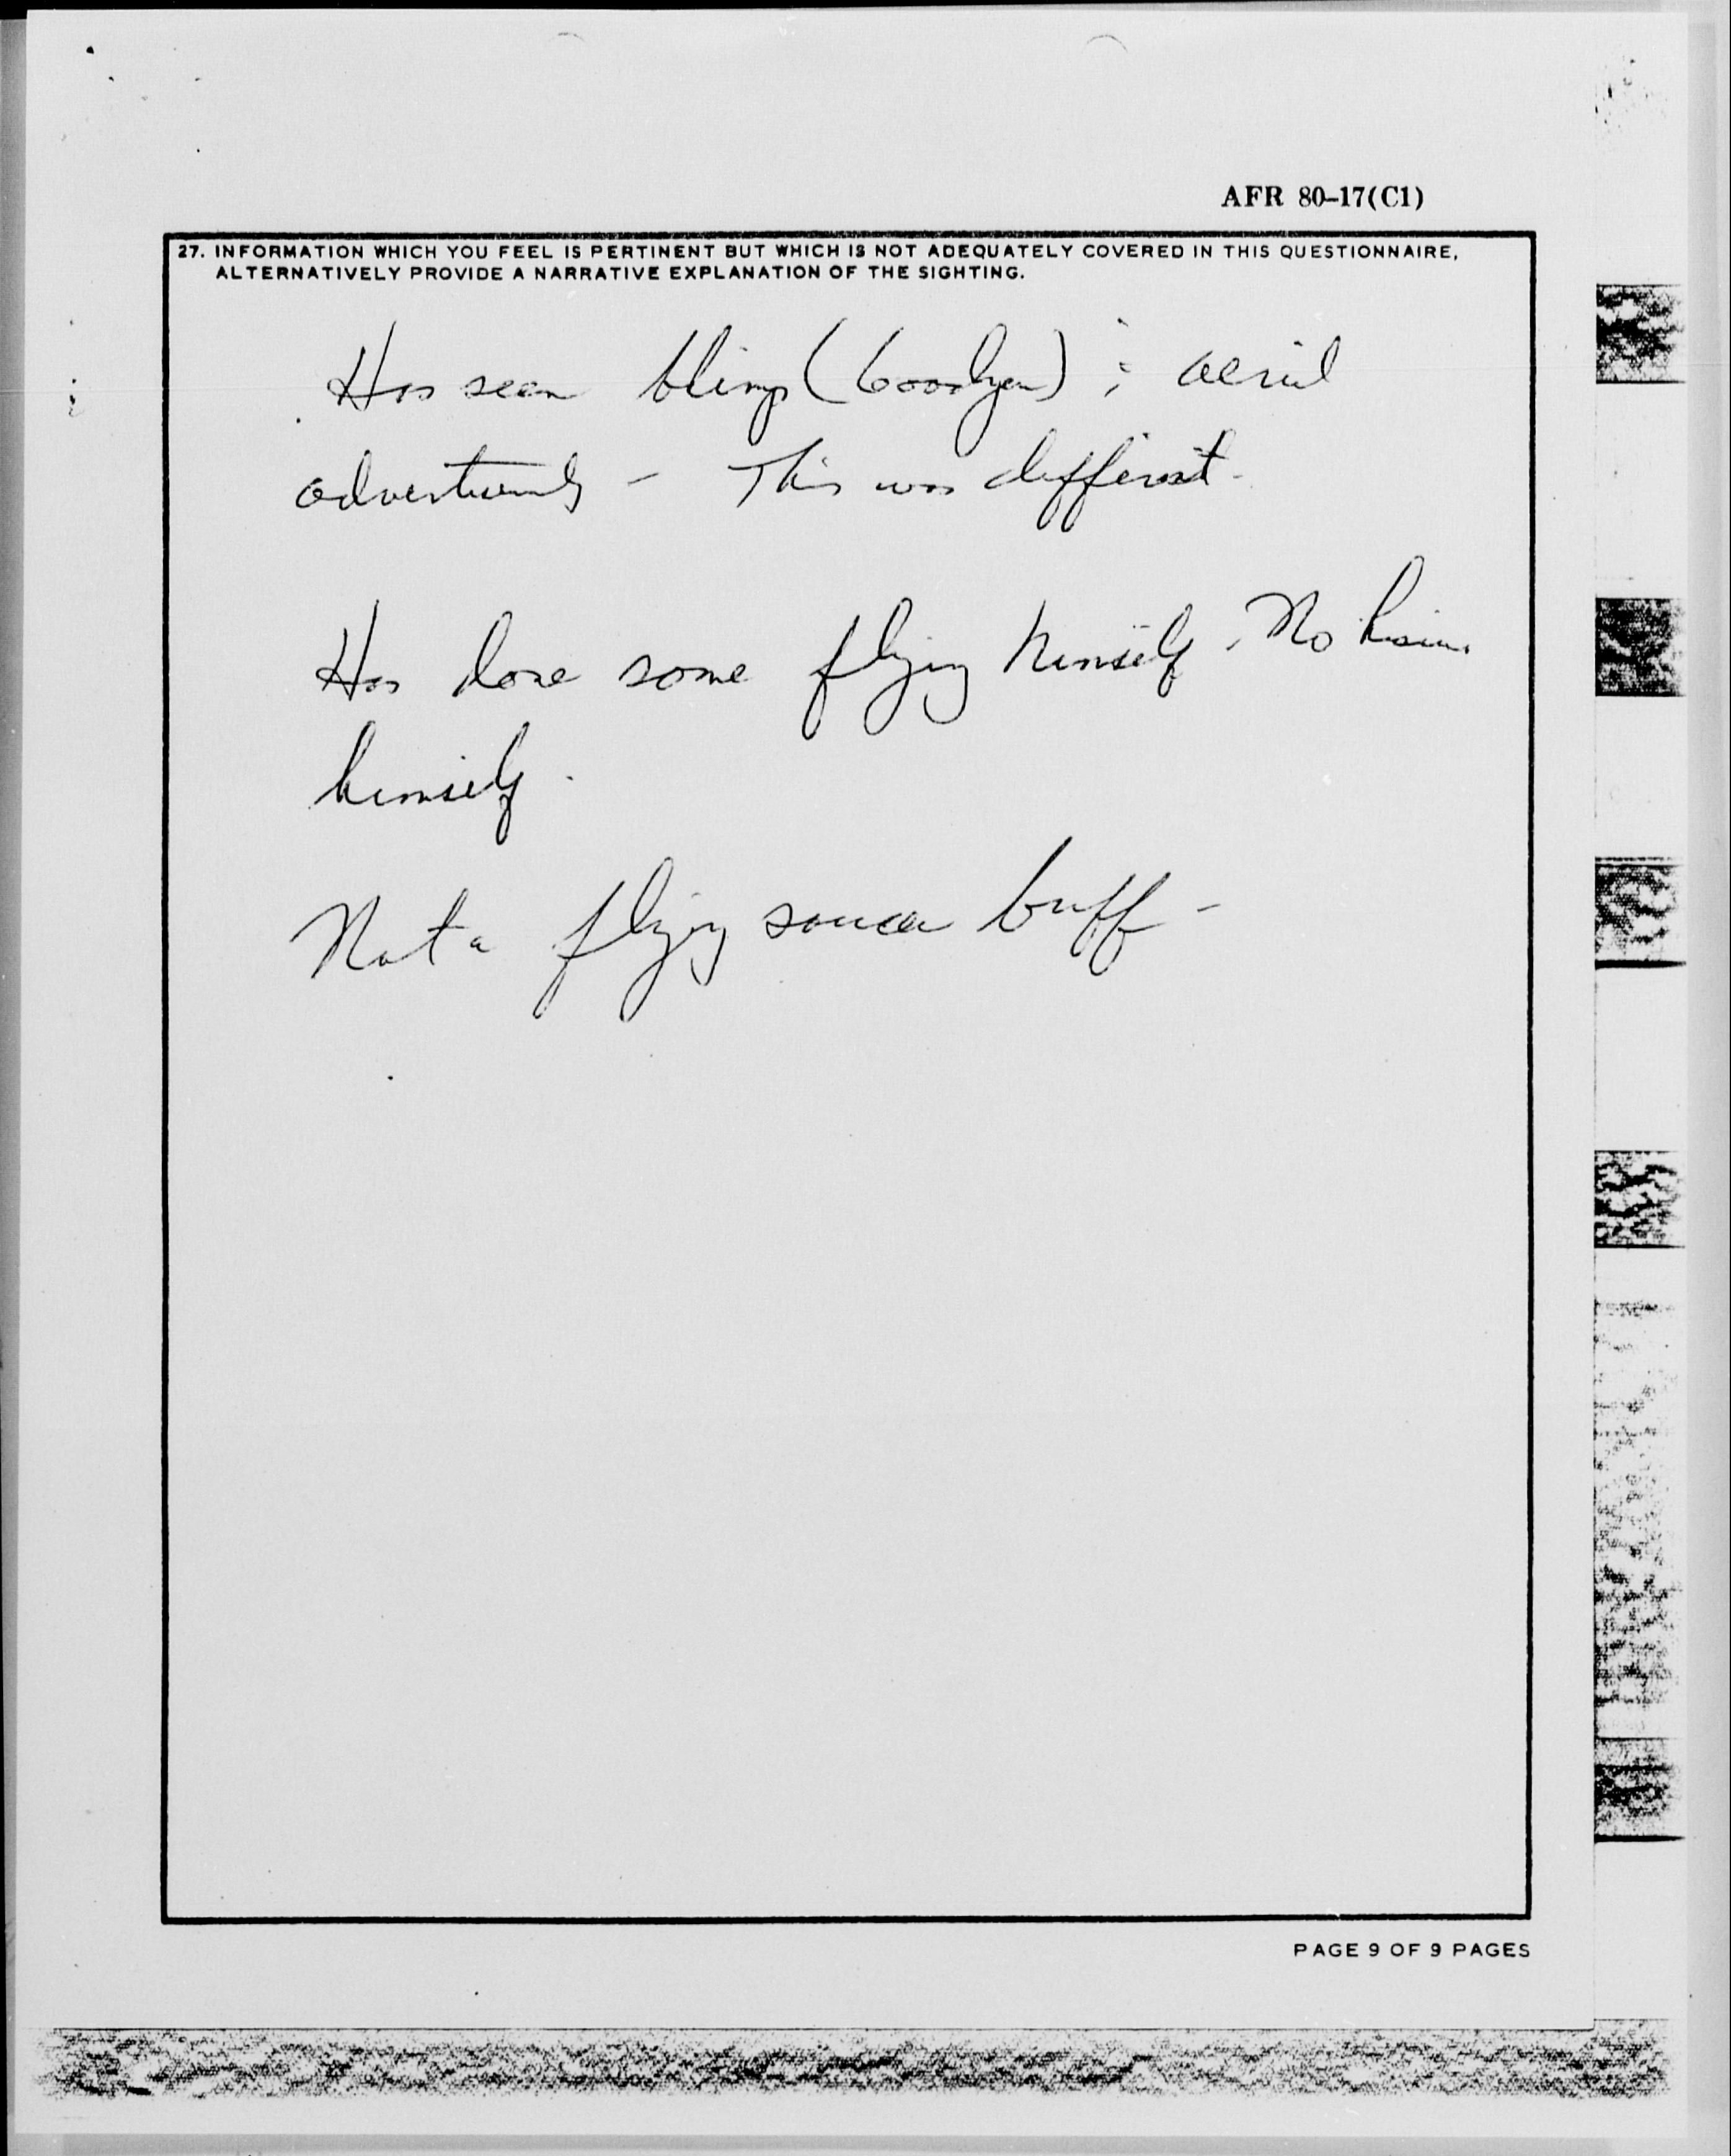 AFR 80-17(C1)
27. INFORMATION WHICH YOU FEEL IS PERTINENT BUT WHICH IS NOT ADEQUATELY COVERED IN THIS QUESTIONNAIRE,
ALTERNATIVELY PROVIDE A NARRATIVE EXPLANATION OF THE SIGHTING.
Has seen blimp (Goodyear) ; aerial
advertisements - This was different -
Has done some flying himself. No
himself.
Not a flying saucer buff -
PAGE 9 OF 9 PAGES